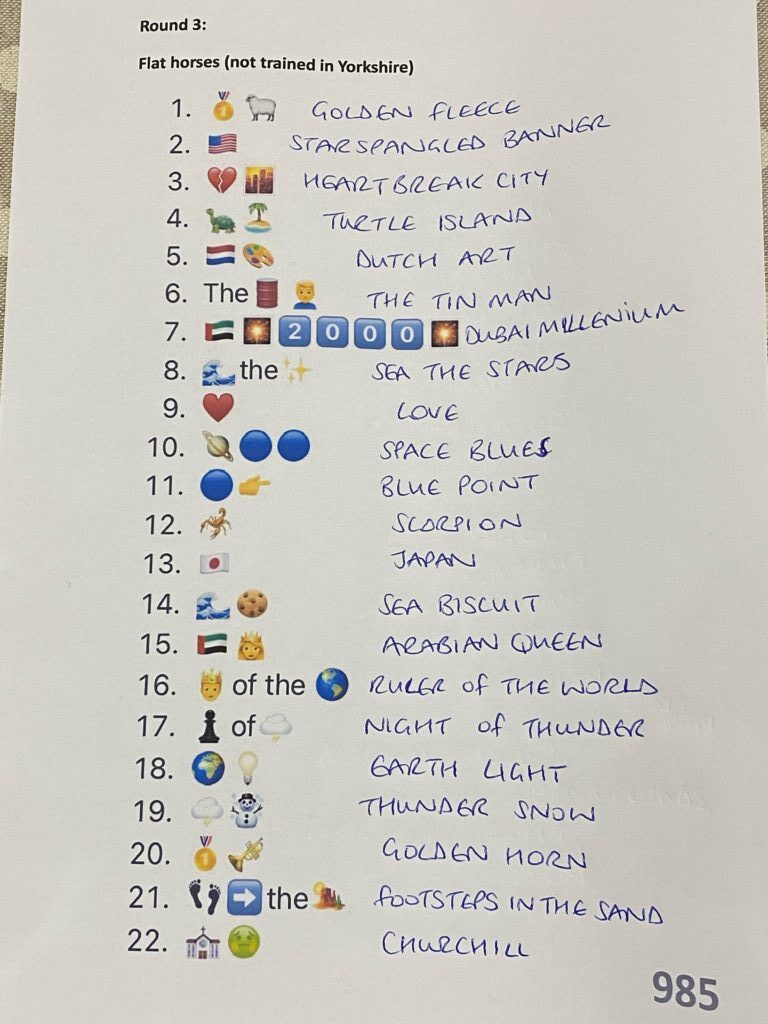 Round 3:
Flat horses (not trained in Yorkshire)
1. 🥇🐑 GOLDEN FLEECE
2. 🇺🇸 STARSPANGLED BANNER
3. 💔🌇 HEARTBREAK CITY
4. 🐢🏝️ TURTLE ISLAND
5. 🇳🇱🎨 DUTCH ART
6. The 🛢️👨 THE TIN MAN
7. 🇦🇪🎇2️⃣0️⃣0️⃣0️⃣🎇 DUBAI MILLENIUM
8. 🌊 the ✨ SEA THE STARS
9. ❤️ LOVE
10. 🪐🔵🔵 SPACE BLUES
11. 🔵👉 BLUE POINT
12. 🦂 SCORPION
13. 🇯🇵 JAPAN
14. 🌊🍪 SEA BISCUIT
15. 🇦🇪👸 ARABIAN QUEEN
16. 🤴 of the 🌎 RULER OF THE WORLD
17. ♟️ of 🌩️ NIGHT OF THUNDER
18. 🌍💡 EARTH LIGHT
19. 🌩️☃️ THUNDER SNOW
20. 🥇🎺 GOLDEN HORN
21. 👣➡️ the 🏜️ FOOTSTEPS IN THE SAND
22. ⛪🤢 CHURCHILL
985